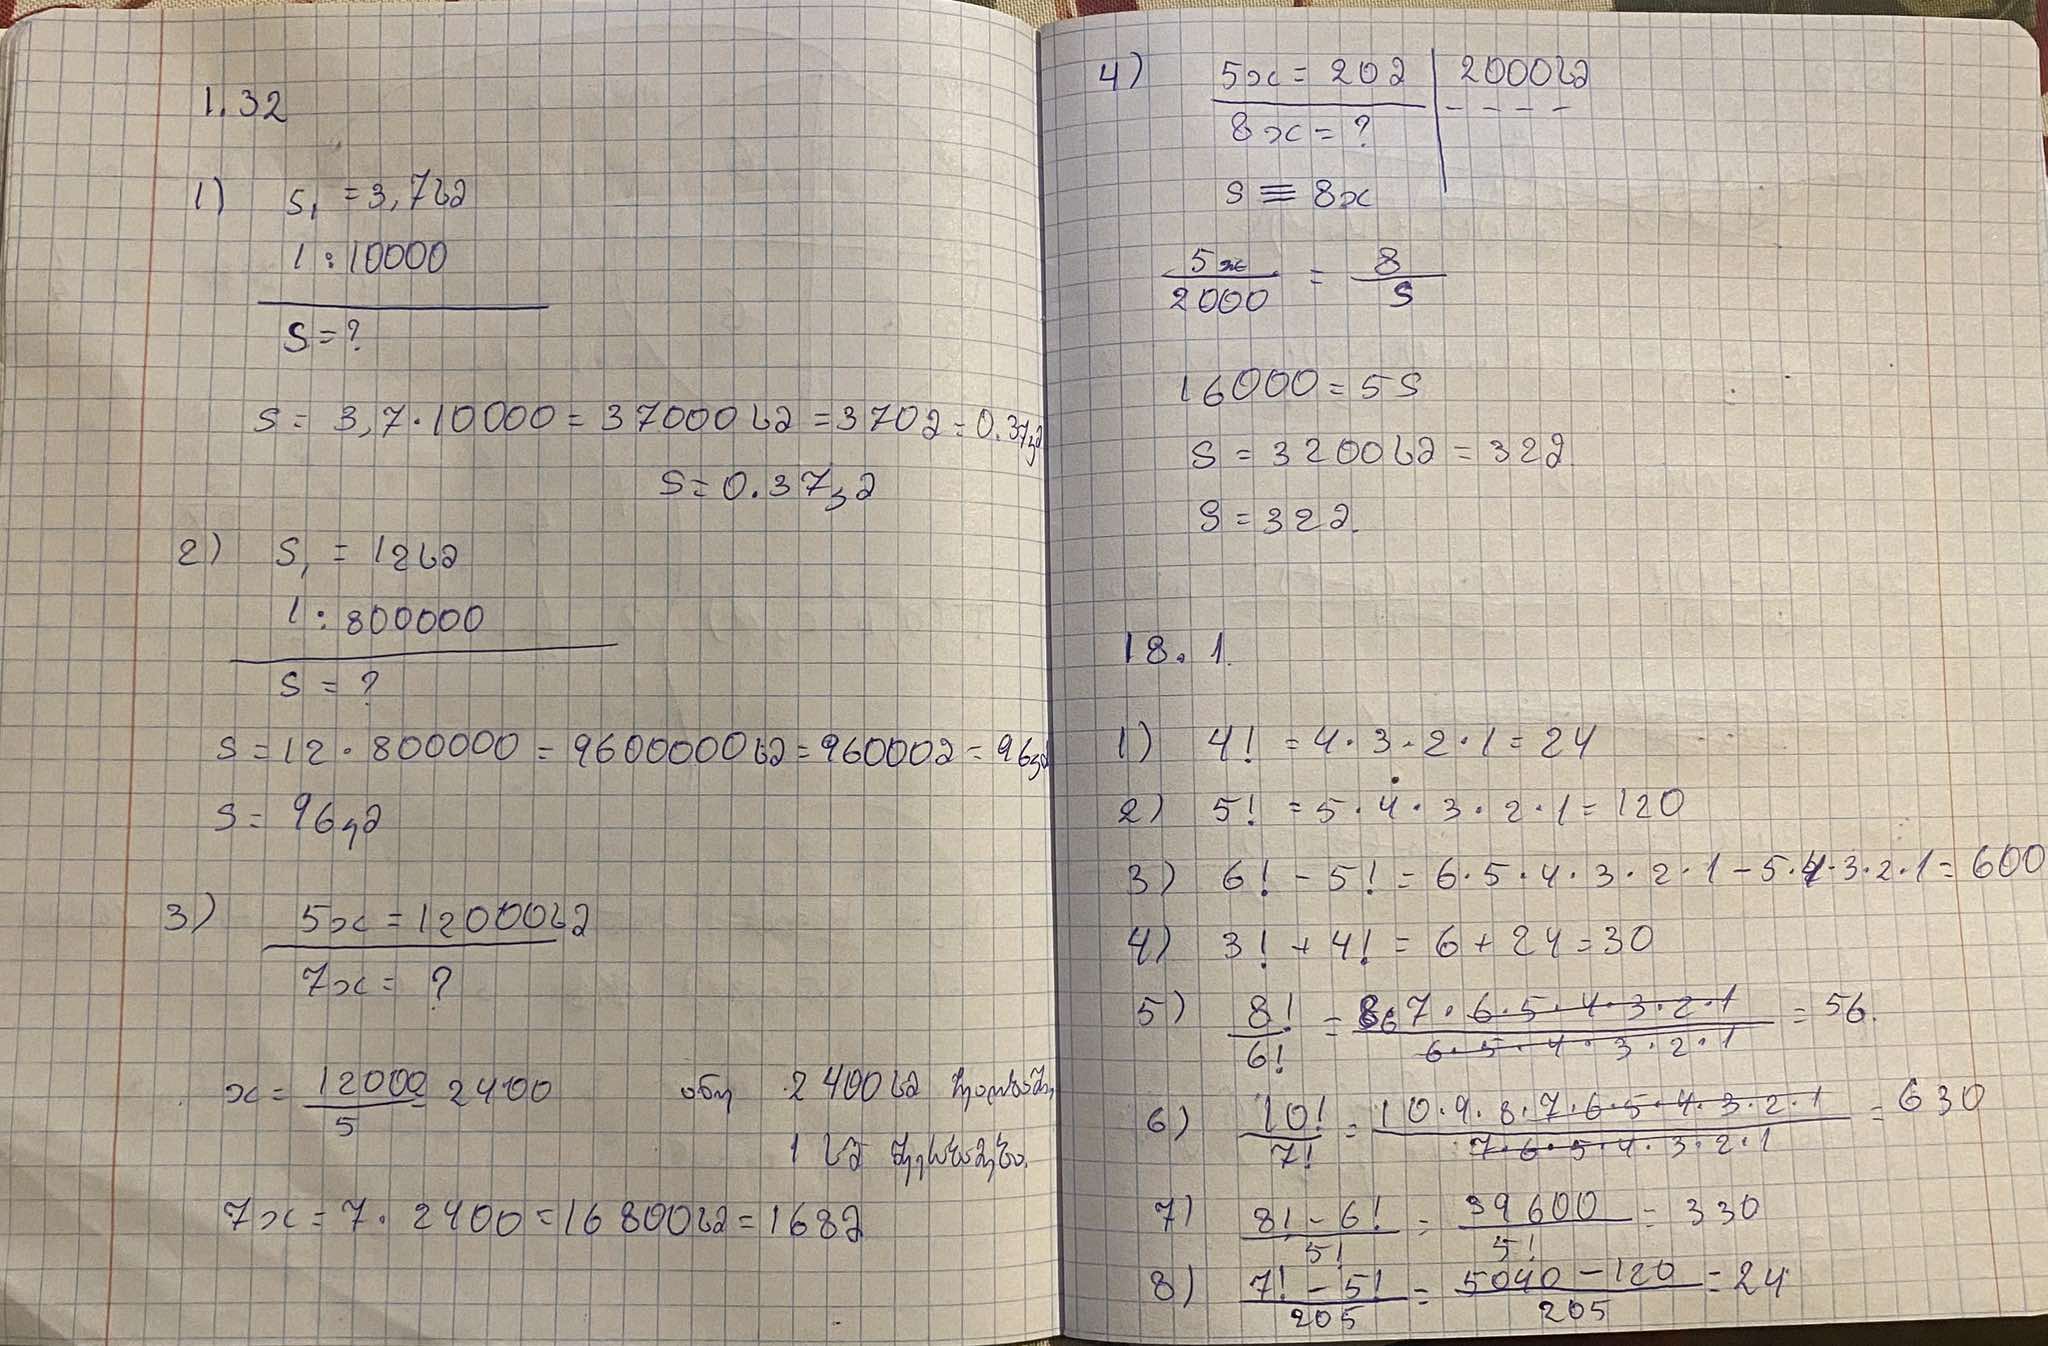 1.32
1) S₁ = 3,7სმ
1:10000
S=?
S= 3,7·10000=37000სმ=370მ=0.37კმ
S=0.37კმ
2) S₁ = 12სმ
1:800000
S = ?
S=12·800000=9600000სმ=96000მ=96კმ
S= 96კმ
3) 5x=12000სმ
7x= ?
x= 12000/5 = 2400 ანუ 2400სმ
1 სმ
7x=7·2400=16800სმ=168მ
4) 5x=20მ | 2000სმ
8x=? - - - -
S≡8x
5x/2000 = 8/S
16000=5S
S=3200სმ=32მ
S=32მ.
18.1.
1) 4! =4·3·2·1=24
2) 5! =5·4·3·2·1=120
3) 6!-5!=6·5·4·3·2·1-5·4·3·2·1=600
4) 3!+4!=6+24=30
5) 8!/6! = 8·7·6·5·4·3·2·1/6·5·4·3·2·1 =56.
6) 10!/7! = 10·9·8·7·6·5·4·3·2·1/7·6·5·4·3·2·1 = 630
7) 8!-6!/5! = 39600/5! = 330
8) 7!-5!/205 = 5040-120/205 =24